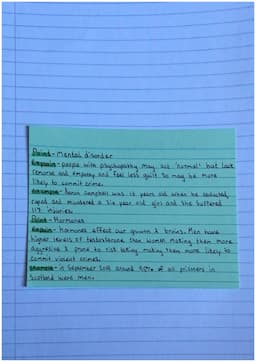 Point - Mental disorder
Explain - people with psychopathy may act 'normal' but lack
remorse and empathy and feel less guilt so may be more
likely to commit crime.
Example - Aaron Campbell was 16 years old when he abducted,
raped and murdered a six year old girl and she suffered
117 injuries.
Point - Hormones
Explain - hormones effect our growth & brains. Men have
higher levels of testosterone than women making them more
aggressive & prone to risk taking making them more likely to
commit violent crimes.
Example - in September 2018 around 95% of all prisoners in
Scotland were men.